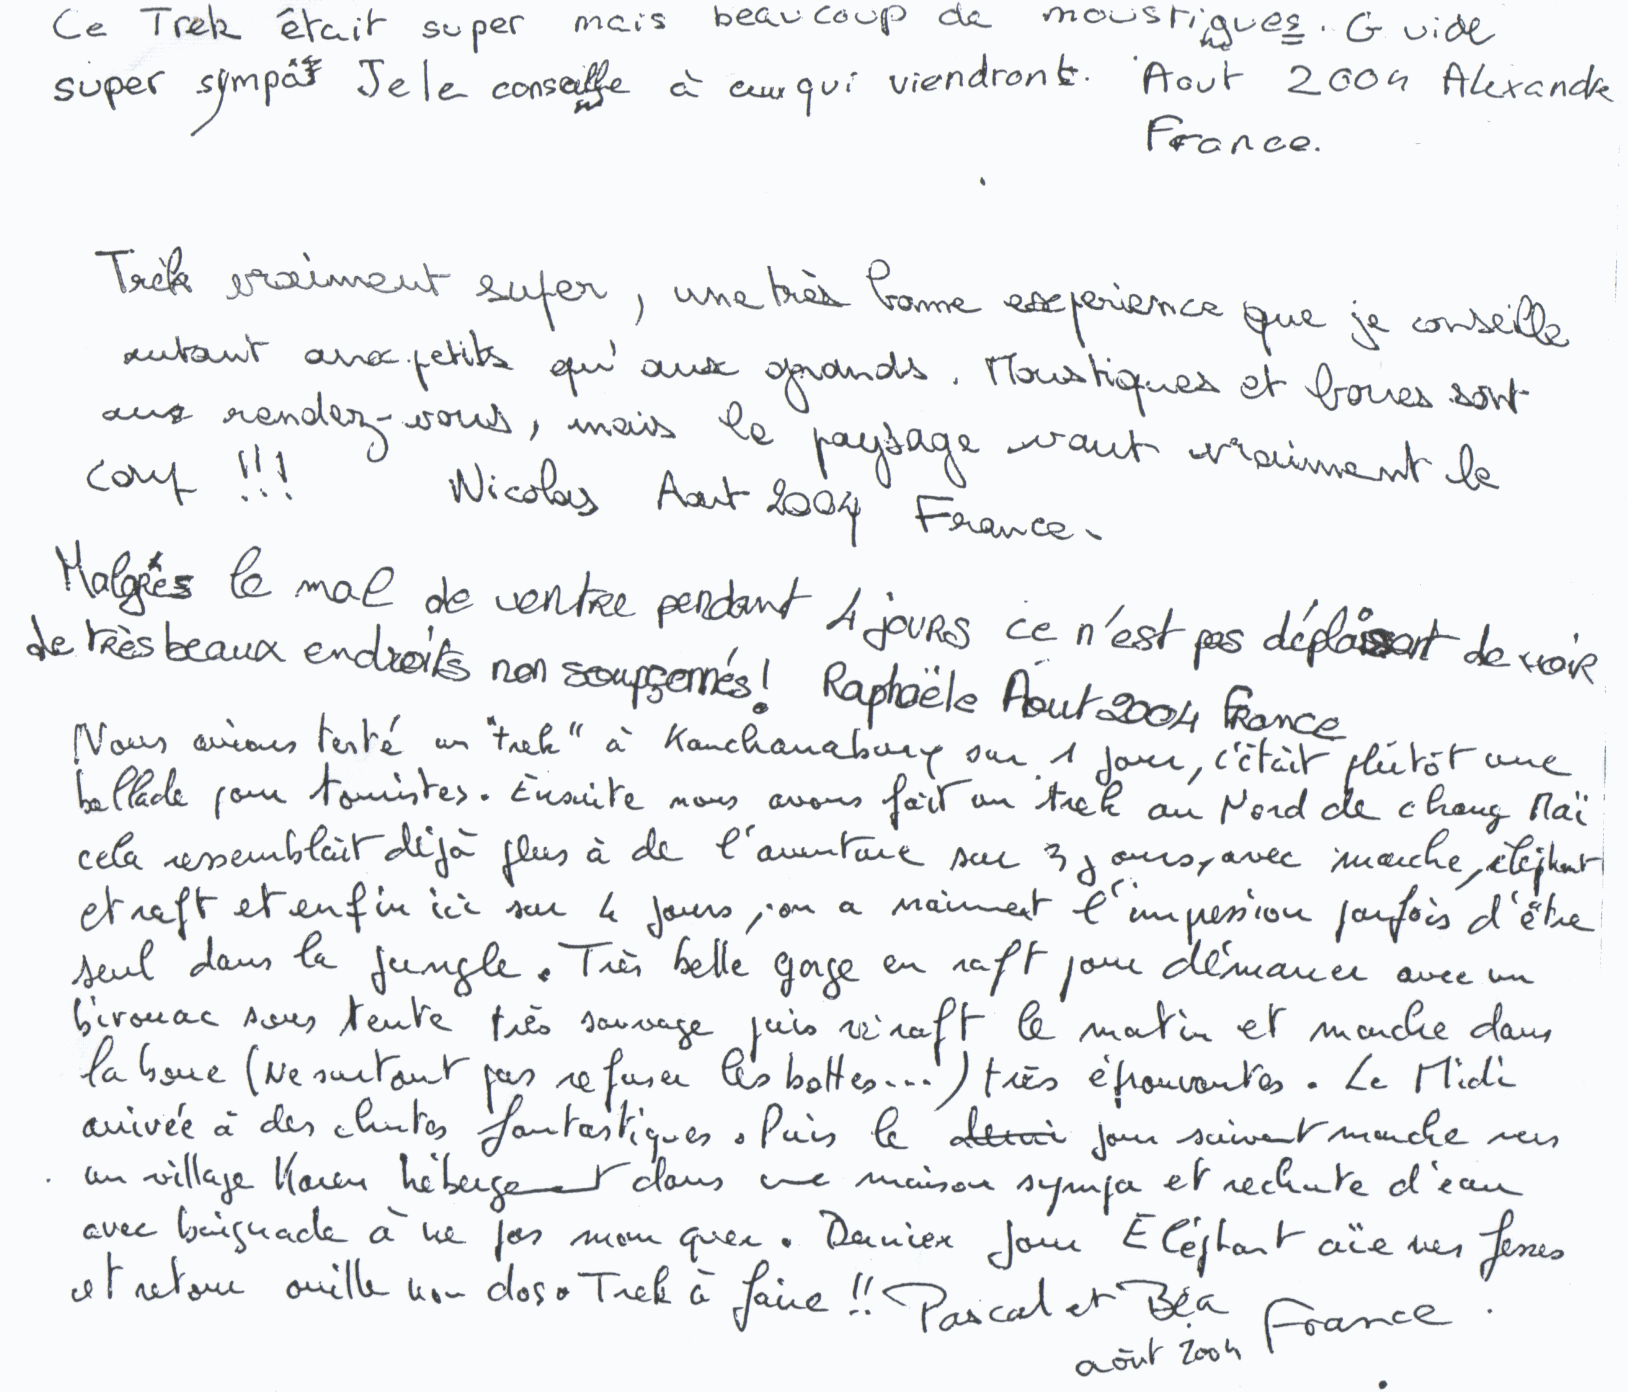 Ce Trek était super mais beaucoup de moustiques. Guide
super sympa Je le conseille à ceux qui viendront. Aout 2004 Alexandre
France.
Trek vraiment super, une très bonne experience que je conseille
autant aux petits qu'aux grands. Moustiques et boues sont
aux rendez-vous, mais le paysage vaut vraiment le
coup !!! Nicolas Aout 2004 France.
Malgrès le mal de ventre pendant 4 jours ce n'est pas déplaisant de voir
de très beaux endroits non soupçonnés! Raphaële Août 2004 France
Nous avions testé un "trek" à Kanchanabury sur 1 jour, c'était plûtôt une
ballade pour touristes. Ensuite nous avons fait un trek au Nord de chang Maï
cela ressemblait déjà plus à de l'aventure sur 3 jours, avec marche, éléphant
et raft et enfin ici sur 4 jours, on a vraiment l'impression parfois d'être
seul dans la jungle. Très belle gorge en raft pour démarrer avec un
bivouac sous tente très sauvage puis raft le matin et marche dans
la boue (Ne surtout pas refuser les bottes...) très éprouvantes. Le Midi
arrivée à des chutes fantastiques. Puis le jour suivant marche vers
un village Karen hébergement dans une maison sympa et rechute d'eau
avec baignade à ne pas manquer. Dernier jour Eléphant aïe mes fesses
et retour ouille mon dos. Trek à faire !! Pascal et Béa France
août 2004